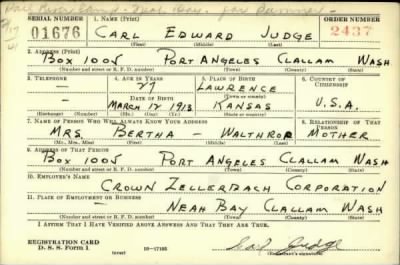 SERIAL NUMBER 1. NAME (Print) ORDER NUMBER
01676 CARL EDWARD JUDGE 2437
(First) (Middle) (Last)
2. ADDRESS (Print)
Box 1005 PORT ANGELES CLALLAM WASH
(Number and street or R. F. D. number) (Town) (County) (State)
3. TELEPHONE 4. AGE IN YEARS 5. PLACE OF BIRTH 6. COUNTRY OF CITIZENSHIP
— 27 LAWRENCE
DATE OF BIRTH (Town or county)
— MARCH 17 1913 KANSAS U.S.A.
(Exchange) (Number) (Mo.) (Day) (Yr.) (State or country)
7. NAME OF PERSON WHO WILL ALWAYS KNOW YOUR ADDRESS 8. RELATIONSHIP OF THAT PERSON
MRS. BERTHA — WALTHROP MOTHER
(Mr., Mrs., Miss) (First) (Middle) (Last)
9. ADDRESS OF THAT PERSON
Box 1005 PORT ANGELES CLALLAM WASH
(Number and street or R. F. D. number) (Town) (County) (State)
10. EMPLOYER'S NAME
CROWN ZELLERBACH CORPORATION
11. PLACE OF EMPLOYMENT OR BUSINESS
NEAH BAY CLALLAM WASH
(Number and street or R. F. D. number) (Town) (County) (State)
I AFFIRM THAT I HAVE VERIFIED ABOVE ANSWERS AND THAT THEY ARE TRUE.
REGISTRATION CARD
D. S. S. Form 1 (over) 16—17105 Carl Judge
(Registrant's signature)